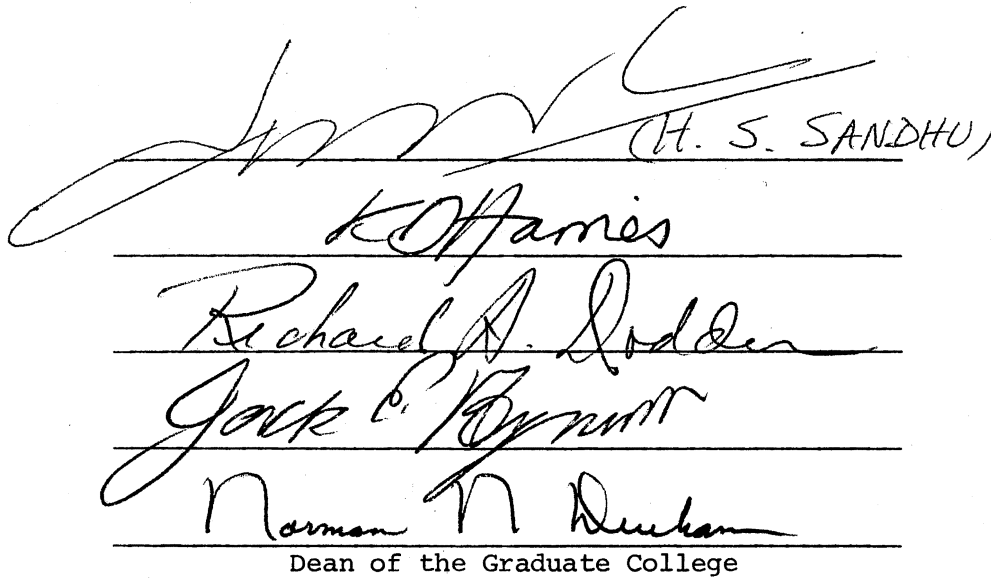 (H. S. SANDHU)
K D Harries
Richard A. Dodder
Jack E. Bynum
Norman N Durham
Dean of the Graduate College